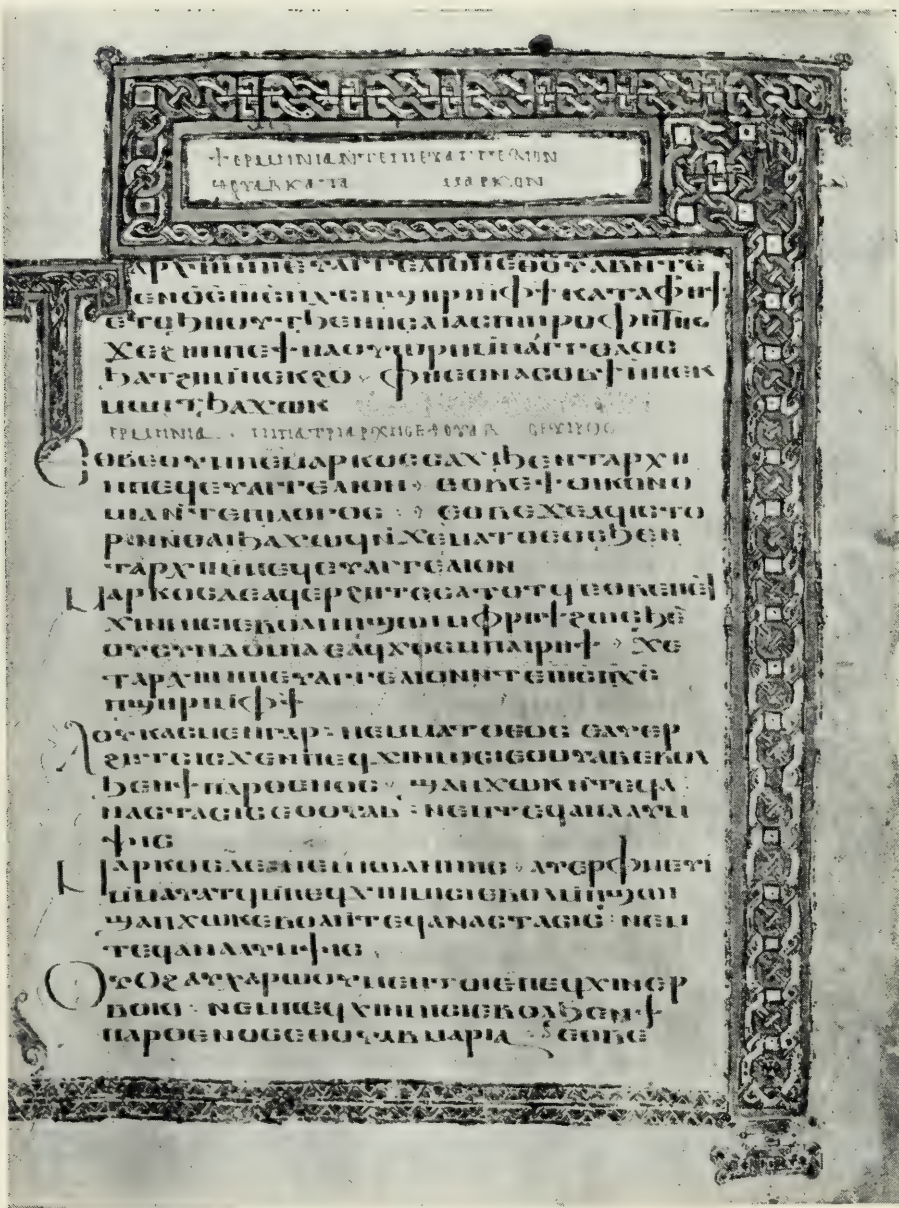 ϯⲉⲣⲙⲏⲛⲓⲁ ⲛⲧⲉ ⲡⲓⲉⲩⲁⲅⲅⲉⲗⲓⲟⲛ
ⲉⲑⲩ ⲕⲁⲧⲁ ⲙⲁⲣⲕⲟⲛ
ⲁⲣⲭⲏ ⲙⲡⲓⲉⲩⲁⲅⲅⲉⲗⲓⲟⲛ ⲉⲑⲟⲩⲁⲃ ⲛⲧⲉ
ⲡⲭⲥ ⲡϣⲏⲣⲓ ⲙⲫϯ ⲕⲁⲧⲁ ⲫⲣⲏϯ
ⲉⲧⲥϧⲏⲟⲩⲧ ϧⲉⲛ ⲏⲥⲁⲓⲁⲥ ⲡⲓⲡⲣⲟⲫⲏⲧⲏⲥ
ϫⲉ ϩⲏⲡⲡⲉ ϯⲛⲁⲟⲩⲱⲣⲡ ⲙⲡⲁⲁⲅⲅⲉⲗⲟⲥ
ϧⲁⲧϩⲏ ⲙⲡⲉⲕϩⲟ · ⲫⲏⲉⲑⲛⲁⲥⲟⲃϯ ⲙⲡⲉⲕ
ⲙⲱⲓⲧ ϧⲁϫⲱⲕ
ⲉⲣⲙⲏⲛⲓⲁ · ⲡⲓⲡⲁⲧⲣⲓⲁⲣⲭⲏⲥ ⲉⲑⲟⲩⲁⲃ ⲥⲉⲩⲏⲣⲟⲥ
ⲉⲑⲃⲉ ⲟⲩ ⲙⲡⲉ ⲙⲁⲣⲕⲟⲥ ⲥⲁϫⲓ ϧⲉⲛ ⲧⲁⲣⲭⲏ
ⲙⲡⲉϥⲉⲩⲁⲅⲅⲉⲗⲓⲟⲛ · ⲉⲑⲃⲉ ϯⲟⲓⲕⲟⲛⲟ
ⲙⲓⲁ ⲛⲧⲉ ⲡⲓⲗⲟⲅⲟⲥ · ⲉⲑⲃⲉ ϫⲉ ⲁϥⲓⲥⲧⲟ
ⲣⲓⲛ ⲛⲛⲁⲓ ϧⲁϫⲱϥ ⲛϫⲉ ⲙⲁⲧⲑⲉⲟⲥ ϧⲉⲛ
ⲧⲁⲣⲭⲏ ⲙⲡⲉϥⲉⲩⲁⲅⲅⲉⲗⲓⲟⲛ
ⲙⲁⲣⲕⲟⲥ ⲇⲉ ⲁϥⲉⲣϩⲏⲧⲥ ⲥⲁⲧⲟⲧϥ ⲉⲑⲃⲉ ⲡⲉϥ
ϫⲓⲛⲙⲓⲥⲓ ⲉⲃⲟⲗ ⲙⲡϣⲱⲓ ⲙⲫⲣⲏϯ ϩⲱⲥ ϧⲉⲛ
ⲟⲩⲥⲩⲛⲁⲟⲙⲁ ⲉⲁϥϫⲟⲥ ⲙⲡⲁⲓⲣⲏϯ · ϫⲉ
ⲧⲁⲣⲭⲏ ⲙⲡⲓⲉⲩⲁⲅⲅⲉⲗⲓⲟⲛ ⲛⲧⲉ ⲓⲏⲥ ⲡⲭⲥ
ⲡϣⲏⲣⲓ ⲙⲫϯ
ⲗⲟⲩⲕⲁⲥ ⲙⲉⲛ ⲅⲁⲣ · ⲛⲉⲙ ⲙⲁⲧⲑⲉⲟⲥ ⲉⲁⲩⲉⲣ
ϩⲏⲧⲥ ⲓⲥϫⲉⲛ ⲡⲉϥϫⲓⲛⲙⲓⲥⲓ ⲉⲑⲟⲩⲁⲃ ⲉⲃⲟⲗ
ϧⲉⲛ ϯⲡⲁⲣⲑⲉⲛⲟⲥ · ϣⲁ ⲡϫⲱⲕ ⲛⲧⲉϥⲁ
ⲛⲁⲥⲧⲁⲥⲓⲥ ⲉⲑⲟⲩⲁⲃ · ⲛⲉⲙ ⲧⲉϥⲁⲛⲁⲗⲩⲙ
ⲯⲓⲥ
ⲙⲁⲣⲕⲟⲥ ⲇⲉ ⲛⲉⲙ ⲓⲱⲁⲛⲛⲏⲥ · ⲁⲩⲉⲣⲫⲙⲉⲩⲓ
ⲙⲙⲁⲩⲁⲧϥ ⲙⲡⲉϥϫⲓⲛⲙⲓⲥⲓ ⲉⲃⲟⲗ ⲙⲡϣⲱⲓ
ϣⲁ ⲡϫⲱⲕ ⲉⲃⲟⲗ ⲛⲧⲉϥⲁⲛⲁⲥⲧⲁⲥⲓⲥ · ⲛⲉⲙ
ⲧⲉϥⲁⲛⲁⲗⲩⲙⲯⲓⲥ
ⲟⲩⲟϩ ⲁⲩⲭⲁⲣⲱⲟⲩ ⲙⲉⲛⲧⲟⲓⲅⲉ ⲡⲉϥϫⲓⲛⲉⲣ
ⲃⲟⲕⲓ · ⲛⲉⲙ ⲡⲉϥϫⲓⲛⲙⲓⲥⲓ ⲉⲃⲟⲗ ϧⲉⲛ ϯ
ⲡⲁⲣⲑⲉⲛⲟⲥ ⲉⲑⲟⲩⲁⲃ ⲙⲁⲣⲓⲁ · ⲉⲑⲃⲉ